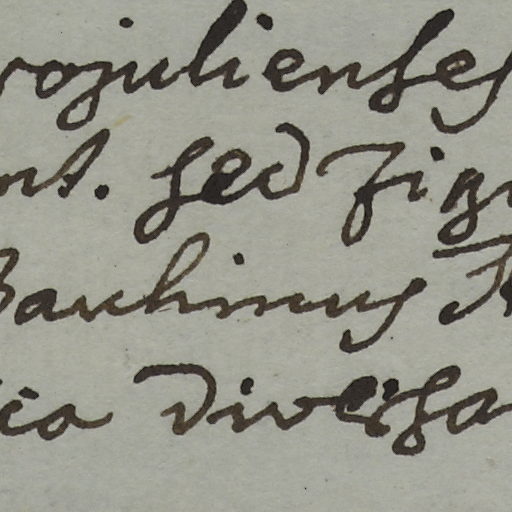 rojulienses
nt. sed figu
Bauhinus
ica diversa